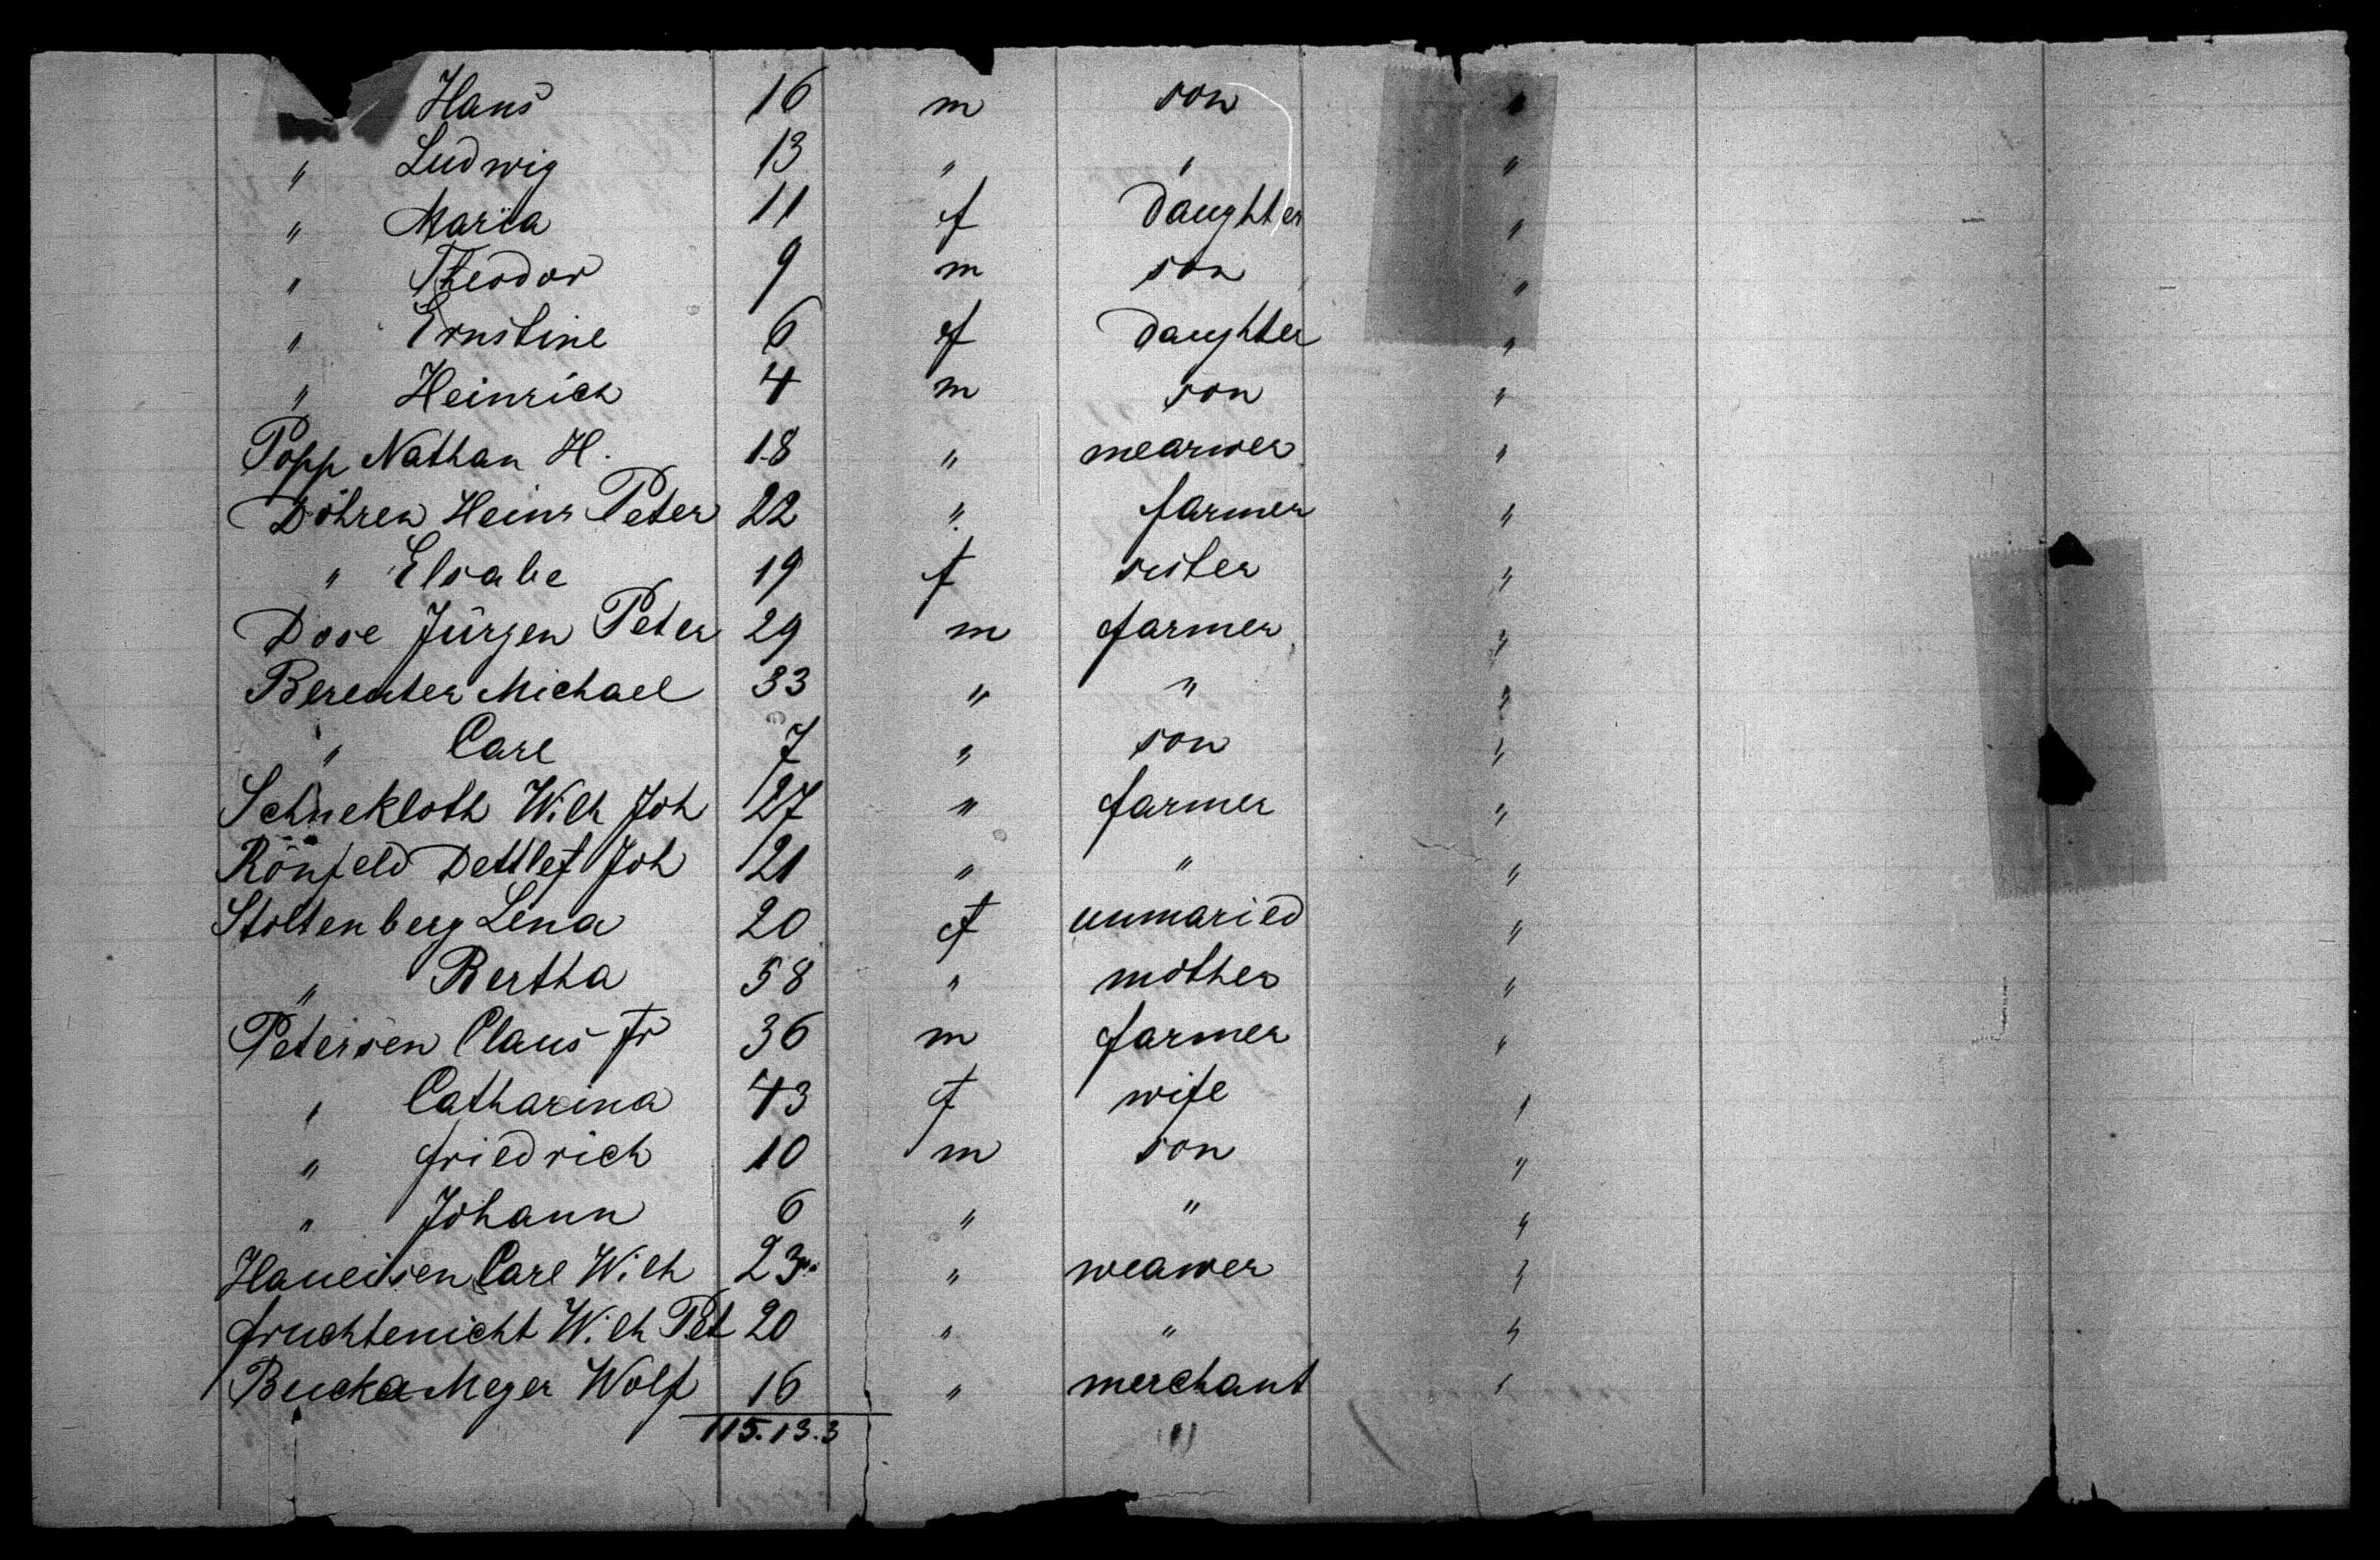 Hans 16 m son "
" Ludwig 13 " " "
" Maria 11 f Daughter "
" Theodor 9 m son "
" Ernstine 6 f Daughter "
" Heinrich 4 m son "
Popp Nathan H. 18 " mearwer "
Döhren Heinr Peter 22 " farmer "
" Elsabe 19 f sister "
Dose Jürgen Peter 29 m farmer "
Bereuter Michael 33 " " "
" Carl 7 " son "
Schnekloth Wilh Joh 27 " farmer "
Rönfeld Dettlef Joh 21 " " "
Stoltenberg Lena 20 f unmaried "
" Bertha 58 " mother "
Petersen Claus Fr 36 m farmer "
" Catharina 43 f wife "
" Friedrich 10 m son "
" Johann 6 " " "
Haueisen Carl Wilh 23 " weawer "
Fruchtenicht Wilh Pet 20 " " "
Bucka Meyer Wolf 16 " merchant "
115.13.3